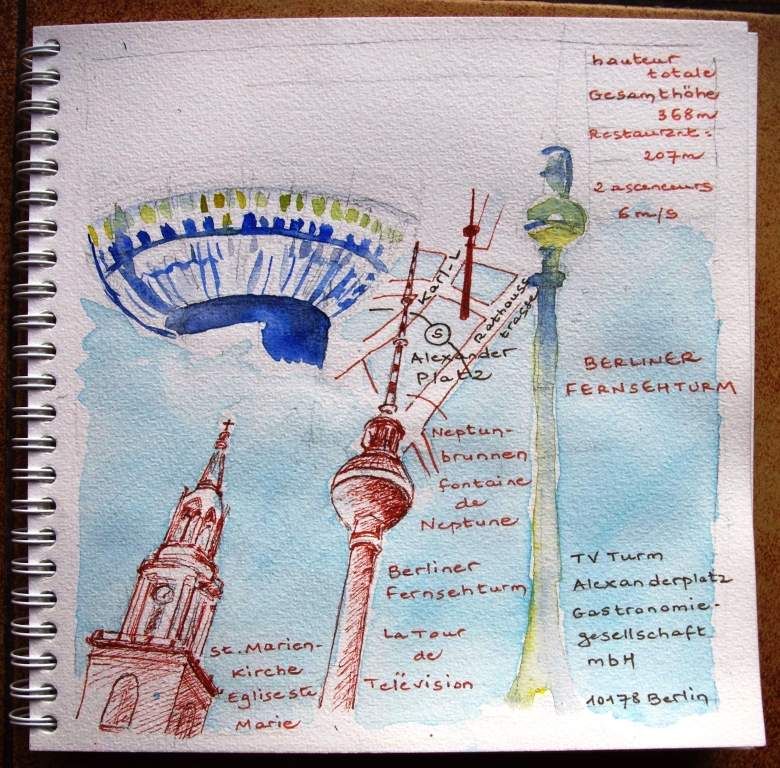 hauteur
totale
Gesamthöhe
368m
Restaurant:
207m
2 ascenceurs
6 m/s
Karl-L
Rathauss
trasse
S
Alexander
Platz
BERLINER
FERNSEHTURM
Neptun-
brunnen
fontaine
de
Neptune
Berliner
Fernsehturm
La Tour
de
Télévision
st. Marien-
Kirche
Eglise ste
Marie
TV Turm
Alexanderplatz
Gastronomie-
gesellschaft
mbH
10178 Berlin